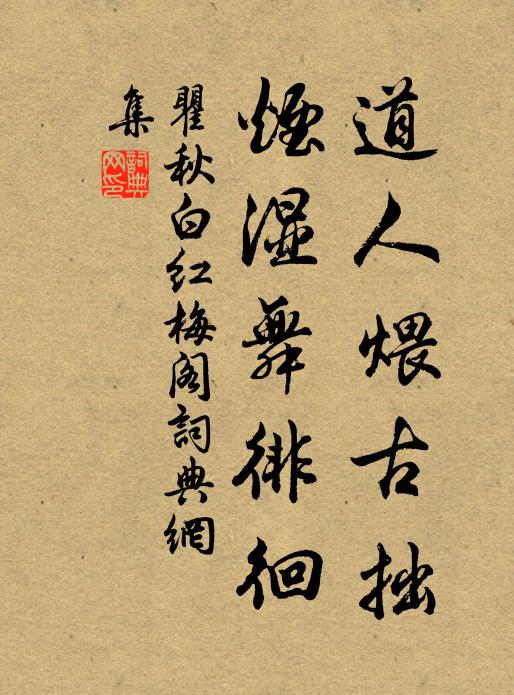 道人煨古拙
煙湿舞徘徊
瞿秋白红梅阁詞典網
集
詞典
网印